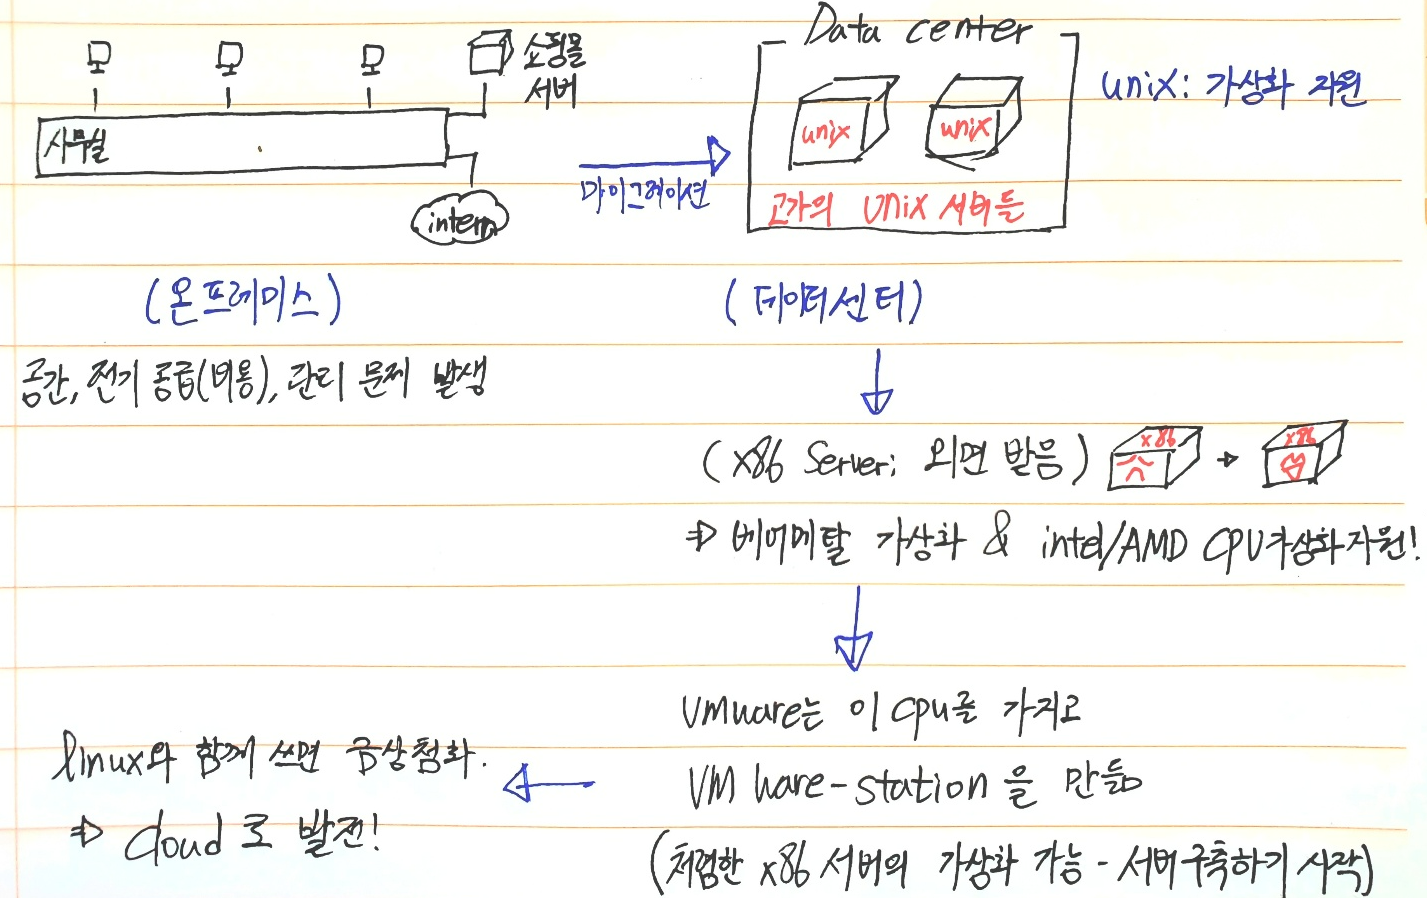 쇼핑몰
서버
사무실
intern
마이그레이션
Data center
unix
unix
고가의 unix 서버들
unix: 가상화 지원
(온프레미스)
공간, 전기 공급(비용), 관리 문제 발생
(데이터센터)
(x86 Server; 외면 받음)
x86
x86
⇒ 베어메탈 가상화 & intel/AMD CPU가상화지원!
Vmware는 이 cpu를 가지고
VM ware-station을 만듦
(처렴한 x86 서버의 가상화 가능 - 서버구축하기 시작)
linux와 함께 쓰면 금상첨화.
⇒ Cloud로 발전!